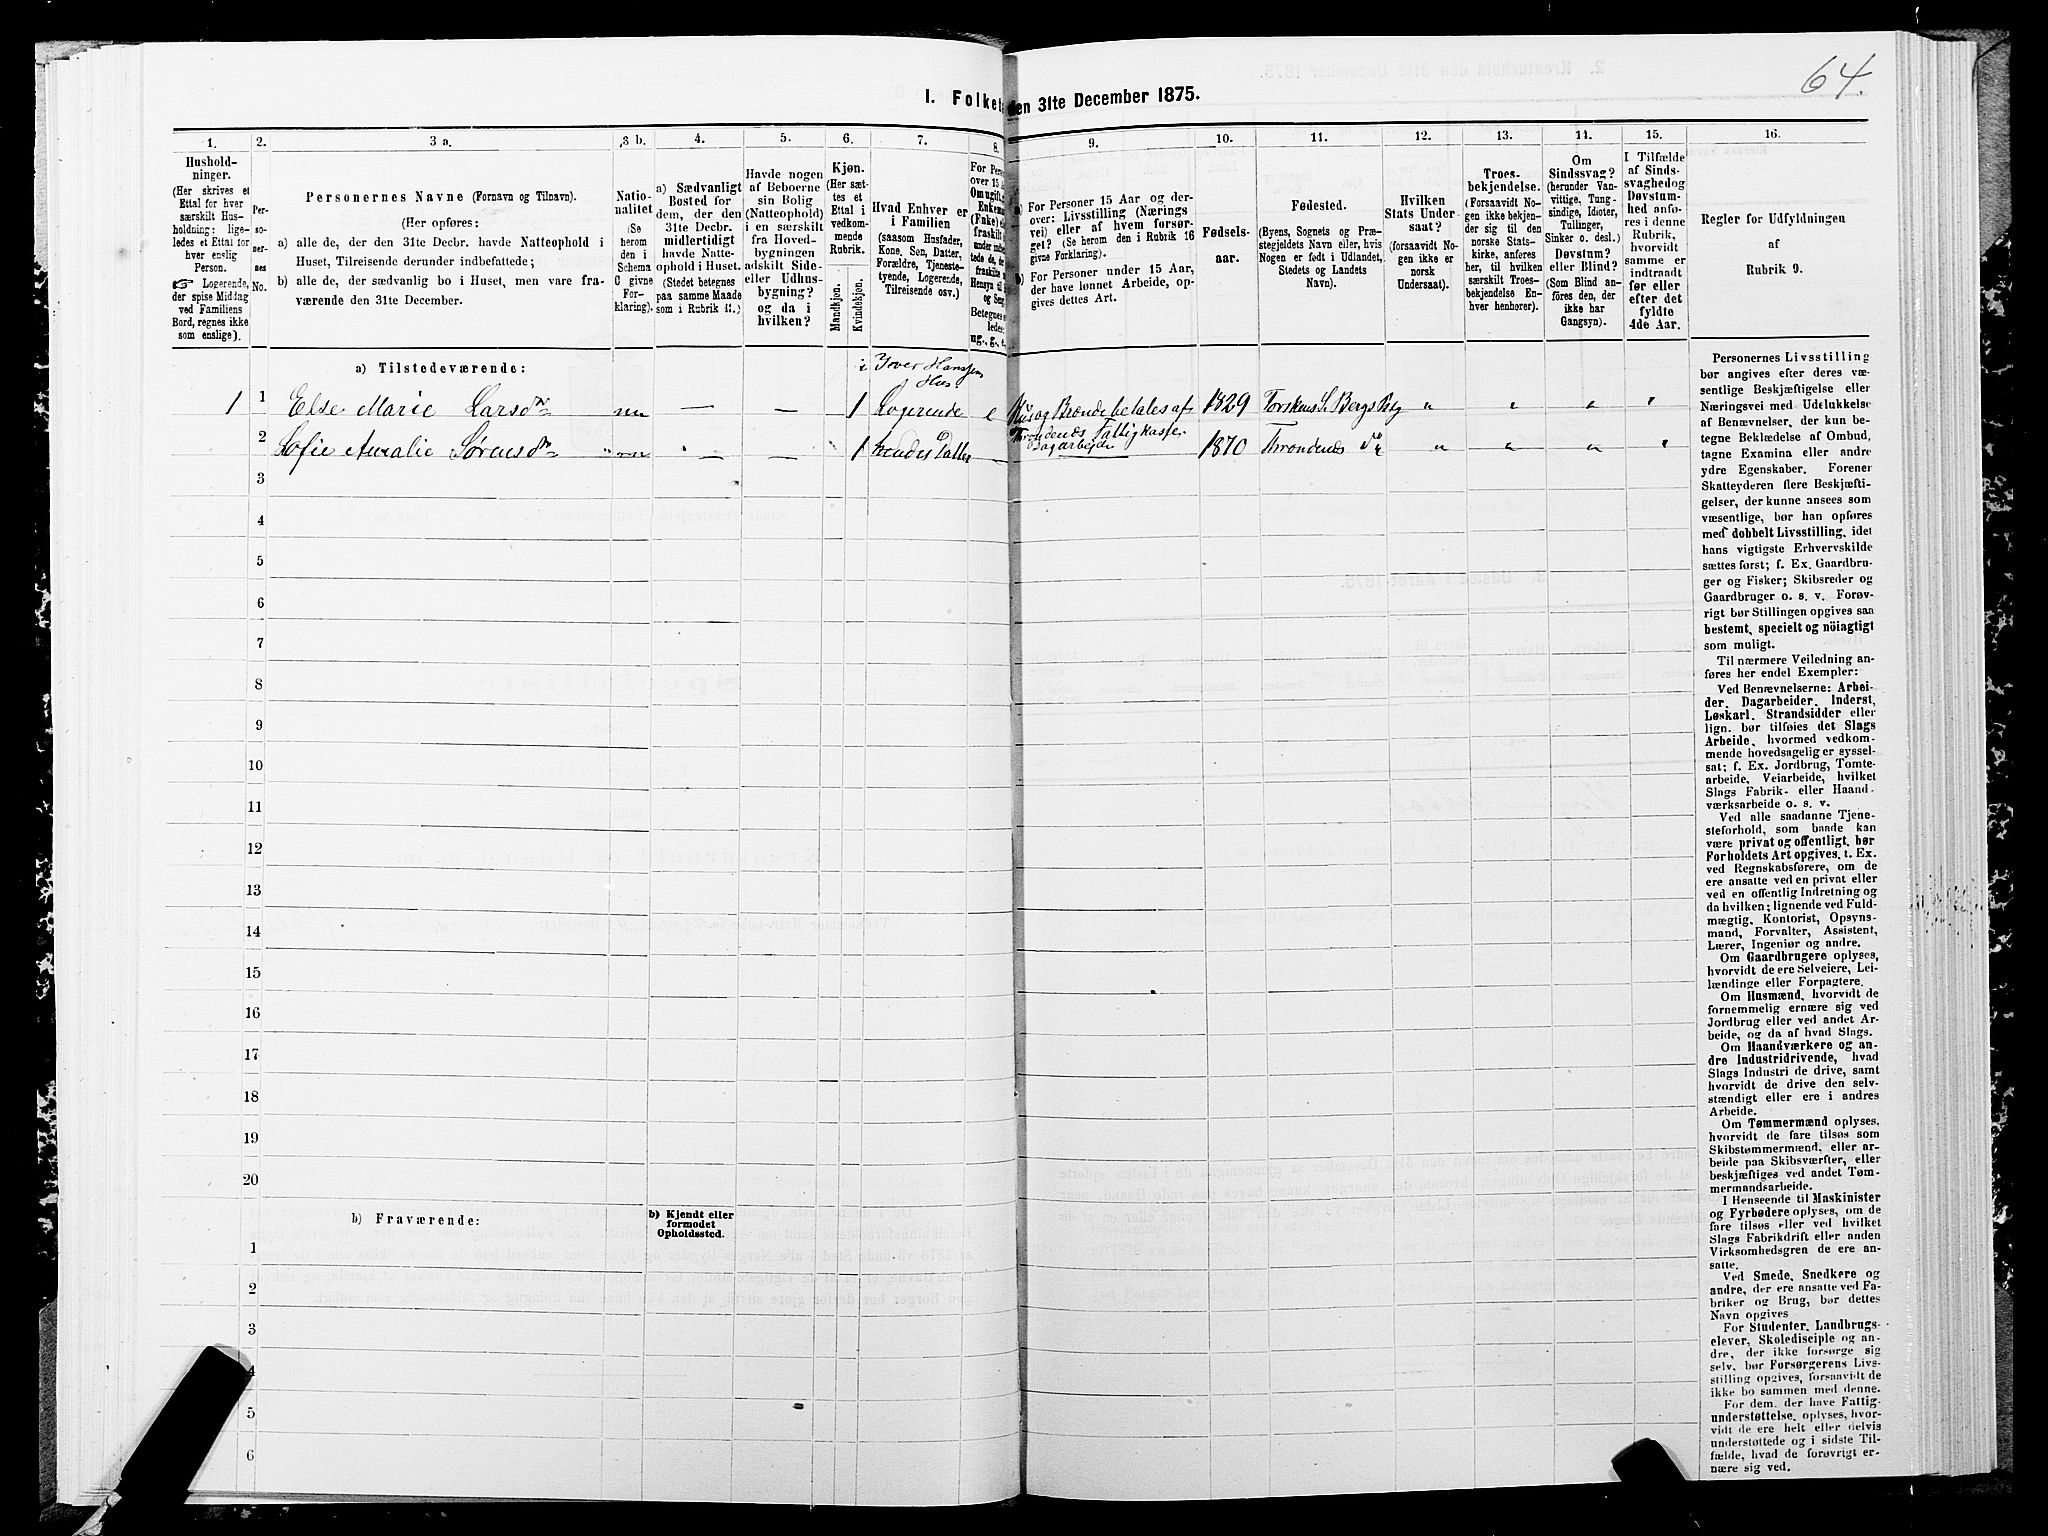 64.
I. Folket
den 31te December 1875.
1. 2. 3 a. 3 b. 4. 5. 6. 7. 8. 9. 10. 11. 12. 13. 14. 15. 16.
Hushold-
ninger.
(Her skrives et
Ettal for hver
særskilt Hus-
holdning: lige-
ledes et Ettal for
hver enslig
Person.
☞ Logerende,
der spise Middag
ved Familiens
Bord, regnes ikke
som enslige).
Per-
so-
ner-
nes
No.
Personernes Navne (Fornavn og Tilnavn).
(Her opføres:
a) alle de, der den 31te Decbr. havde Natteophold i
Huset, Tilreisende derunder indbefattede;
b) alle de, der sædvanlig bo i Huset, men vare fra-
værende den 31te December.
Natio-
nalitet
(Se
herom
den i
Schema
C givne
For-
klaring).
a) Sædvanligt
Bosted for
dem, der den
31te Decbr.
midlertidigt
havde Natte-
ophold i Huset.
(Stedet betegnes
paa samme Maade
som i Rubrik 11.)
Havde nogen
af Beboerne
sin Bolig
(Natteophold)
i en særskilt
fra Hoved-
bygningen
adskilt Side-
eller Udhus-
bygning?
og da i
hvilken?
Kjøn.
(Her sæt-
tes et
Ettal i
vedkom-
mende
Rubrik.
Mandkjøn.
Kvindekjøn.
Hvad Enhver er
i Familien
(saasom Husfader,
Kone, Søn, Datter,
Forældre, Tjeneste-
tyende, Logerende,
Tilreisende osv.)
For Pers
over 15 A
Omugift,
Enkema
(Enke)
fraskilt
under indb
tede de,
fraskilte
Hensyn til
og Seng
Betegnes s
ledes:
ug., g., e.
a) For Personer 15 Aar og der-
over: Livsstilling (Nærings
vei) eller af hvem forsør-
get? (Se herom den i Rubrik 16
givne Forklaring).
b) For Personer under 15 Aar,
der have lønnet Arbeide, op-
gives dettes Art.
Fødsels-
aar.
Fødested.
(Byens, Sognets og Præ-
stegjeldets Navn eller, hvis
Nogen er født i Udlandet,
Stedets og Landets
Navn).
Hvilken
Stats Under-
saat?
(forsaavidt No-
gen ikke er
norsk
Undersaat).
Troes-
bekjendelse.
(Forsaavidt No-
gen ikke bekjen-
der sig til den
norske Stats-
kirke, anføres
her, til hvilken
særskilt Troes-
bekjendelse En-
hver henhører).
Om
Sindssvag?
(herunder Van-
vittige, Tung-
sindige, Idioter,
Tullinger,
Sinker o. desl.)
Døvstum?
eller Blind?
(Som Blind an-
føres den, der
ikke har
Gangsyn).
I Tilfælde
af Sinds-
svaghedog
Døvstum-
hed anfø-
res i denne
Rubrik,
hvorvidt
samme er
indtraadt
før eller
efter det
fyldte
4de Aar.
Regler for Udfyldningen
af
Rubrik 9.
a) Tilstedeværende:
i Iver Hansens
Hus.
1 1 Else Marie Larsdtr nn — — 1 Logerende e Hus og Brænde betales af 1829 Torskens S. Bergs Pstg " " " "
Throndenæs Fattigkasse.
Dagarbeide
2 Sofie Amalie Sørensdtr " nn — — 1 hendes Datter — 1870 Throndenæs do " " " "
3
4
5
6
7
8
9
10
11
12
13
14
15
16
17
18
19
20
b) Fraværende:
b) Kjendt eller
formodet
Opholdssted.
1
2
3
4
5
6
Personernes Livsstilling
bør angives efter deres væ-
sentlige Beskjæftigelse eller
Næringsvei med Udelukkelse
af Benævnelser, der kun be-
tegne Beklædelse af Ombud,
tagne Examina eller andre
ydre Egenskaber. Forener
Skatteyderen flere Beskjæfti-
gelser, der kunne ansees som
væsentlige, bør han opføres
med dobbelt Livsstilling, idet
hans vigtigste Erhvervskilde
sættes først; f. Ex. Gaardbru-
ger og Fisker; Skibsreder og
Gaardbruger o. s. v. Forøv-
rigt bør Stillingen opgives saa
bestemt, specielt og nöiagtigt
som muligt.
Til nærmere Veiledning an-
føres her endel Exempler:
Ved Benævnelserne: Arbei-
der, Dagarbeider, Inderst,
Løskarl, Strandsidder eller
lign. bør tilføies det Slags
Arbeide, hvormed vedkom-
mende hovedsagelig er syssel-
sat; f. Ex. Jordbrug, Tomte-
arbeide, Veiarbeide, hvilket
Slags Fabrik- eller Haand-
værksarbeide o. s. v.
Ved alle saadanne Tjene-
steforhold, som baade kan
være privat og offentligt, bør
Forholdets Art opgives, t. Ex.
ved Regnskabsførere, om de
ere ansatte ved en privat eller
ved en offentlig Indretning og
da hvilken; lignende ved Fuld-
mægtig, Kontorist, Opsyns-
mand, Forvalter, Assistent,
Lærer, Ingeniør og andre.
Om Gaardbrugere oplyses,
hvorvidt de ere Selveiere, Lei-
lændinge eller Forpagtere.
Om Husmænd, hvorvidt de
fornemmelig ernære sig ved
Jordbrug eller ved andet Ar-
beide, og da af hvad Slags.
Om Haandværkere og an-
dre Industridrivende, hvad
Slags Industri de drive, samt
hvorvidt de drive den selv-
stændigt eller ere i andres
Arbeide.
Om Tømmermænd oplyses,
hvorvidt de fare tilsøs som
Skibstømmermænd, eller ar-
beide paa Skibsværfter, eller
beskjæftiges ved andet Tøm-
mermandsarbeide.
I Henseende til Maskinister
og Fyrbødere oplyses, om de
fare tilsøs eller ved hvilket
Slags Fabrikdrift eller anden
Virksomhedsgren de ere an-
satte.
Ved Smede, Snedkere og
andre, der ere ansatte ved Fa-
briker og Brug, bør dettes
Navn opgives
For Studenter, Landbrugs-
elever, Skoledisciple og an-
dre, der ikke forsørge sig
selv, bør Forsørgerens Livs-
stilling opgives, forsaavidt de
ikke bo sammen med denne.
For dem, der have Fattig-
understøttelse, oplyses, hvor-
vidt de ere helt eller delvis
understøttede og i sidste Til-
fælde, hvad de forøvrigt er-
nære sig ved.